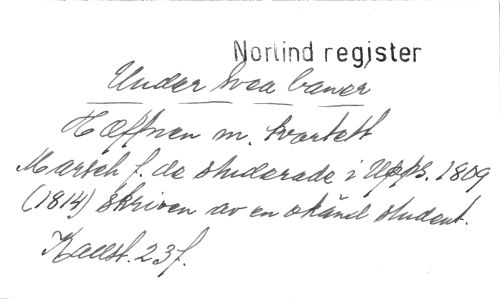 Norlind register
Under Svea baner
Hæffner m. kvartett
Marsch f. de studerade i Upps. 1809
(1814) skriven av en okänd student.
Kallst. 23f.